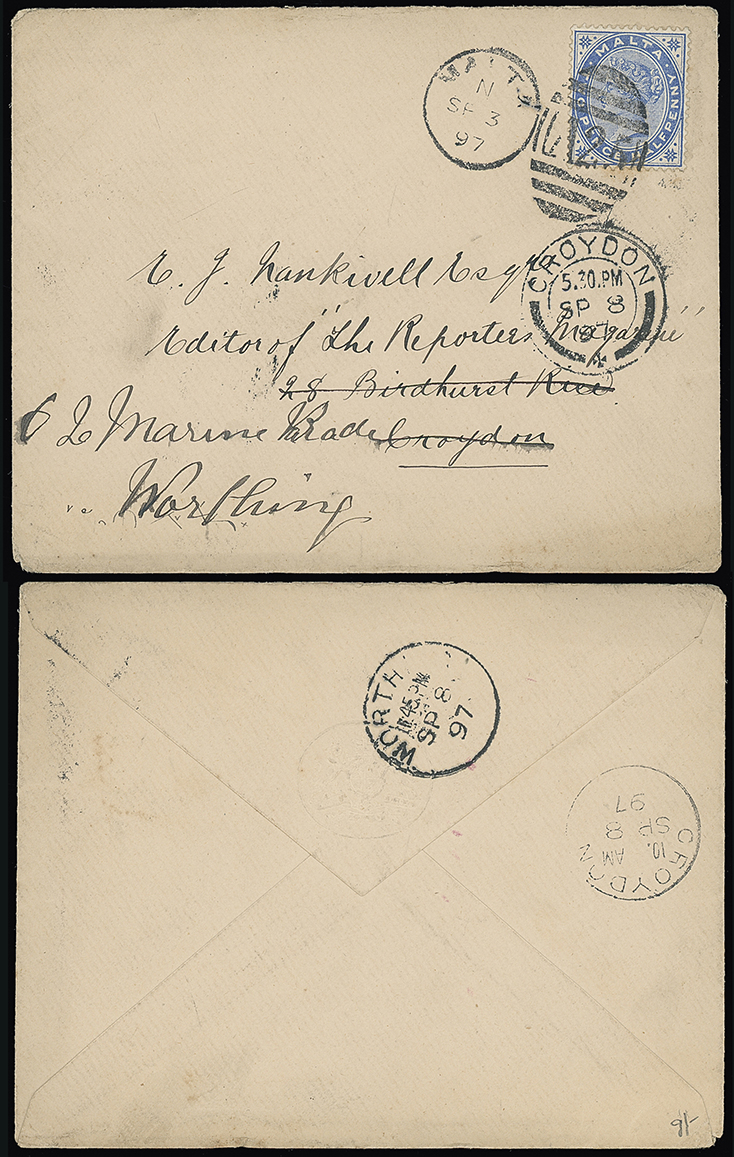 MALTA
N
SP 3
97
MALTA
TWO PENCE HALFPENNY
CROYDON
5.30.PM
SP 8
97
E. J. Nankivell Esqre
Editor of "The Reporters Magazine"
28 Birdhurst Rise
62 Marine Parade Croydon
Worthing
WORTH
PM
SP 8
97
CROYDON
10. AM
SP 8
97